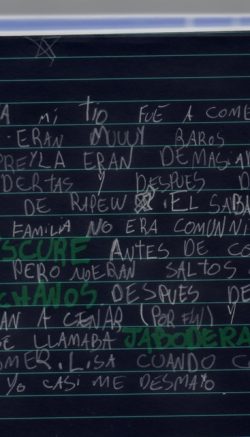 A mi tio FUE A COME
ERAN MUUY RAROS
PREYLA ERAN DEMASIA
DERTAS Y DESPUES D
DE RAPEW EL SABU
FAMILIA NO ERA COMUNNI
SCURE ANTES DE CO
PERO NOERAN SALTOS
CHANOS DESPUES DE
AN A CENAR (POR FIN) Y
SE LLAMABA JABODERA
MER. LISA CUANDO C
YO CASI ME DESMAYO